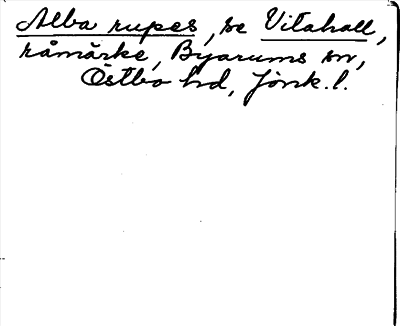 Alba rupes, se Vitahall,
råmärke, Byarums sn,
Östbo hd, Jönk. l.